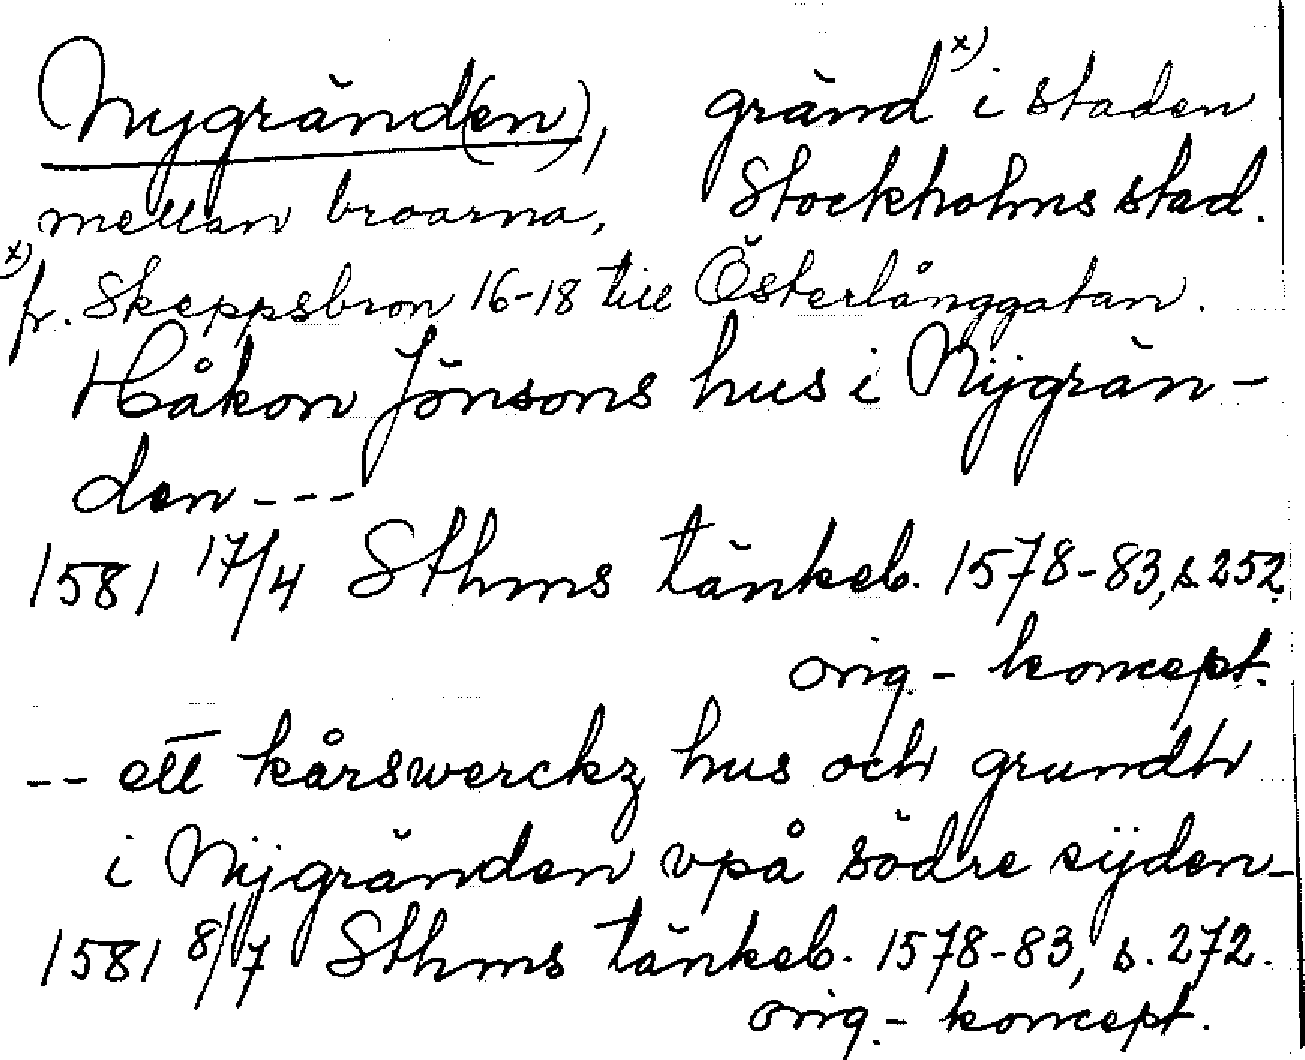 Nygränd(en), gränd x) i staden
mellan broarna, Stockholms stad.
x) fr. Skeppsbron 16-18 till Österlånggatan.
Håkon Jönsons hus i Nijgrän-
den ---
1581 17/4 Sthms tänkeb. 1578-83, s. 252.
orig.- koncept.
-- ett kårswerckz hus och grundh
i Nijgränden vpå södre sijden-
1581 8/7 Sthms tänkeb. 1578-83, s. 272.
orig.- koncept.